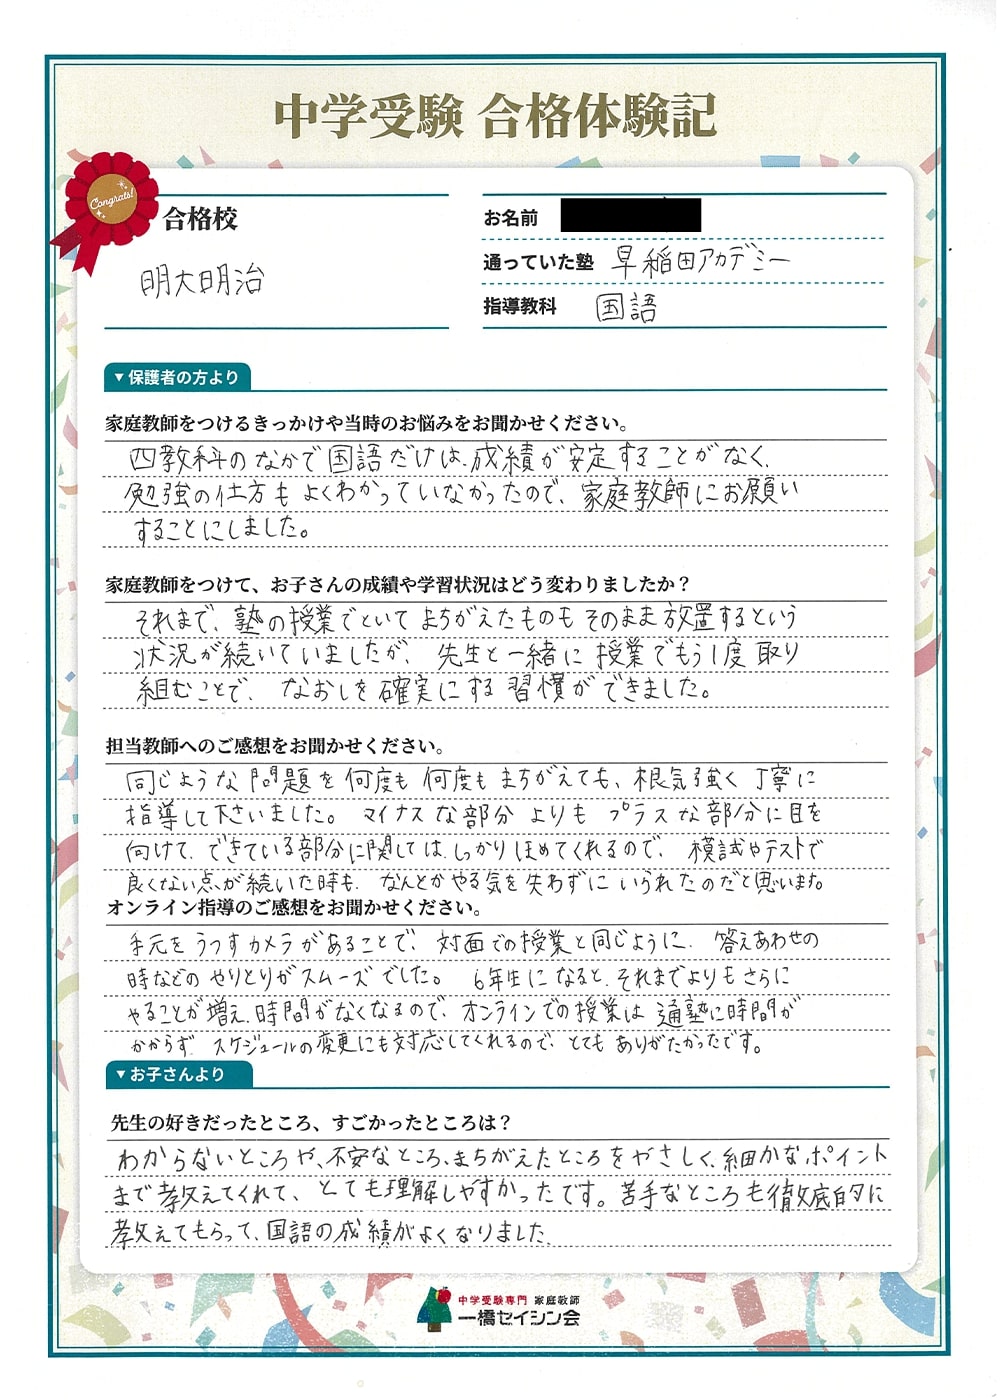 中学受験 合格体験記
Congrats!
合格校
明大明治
お名前
通っていた塾 早稲田アカデミー
指導教科 国語
▼保護者の方より
家庭教師をつけるきっかけや当時のお悩みをお聞かせください。
四教科のなかで国語だけは、成績が安定することがなく、
勉強の仕方もよくわかっていなかったので、家庭教師にお願い
することにしました。
家庭教師をつけて、お子さんの成績や学習状況はどう変わりましたか？
それまで、塾の授業でといてまちがえたものもそのまま放置するという
状況が続いていましたが、先生と一緒に授業でもう1度取り
組むことで、なおしを確実にする習慣ができました。
担当教師へのご感想をお聞かせください。
同じような問題を何度も何度もまちがえても、根気強く丁寧に
指導して下さいました。マイナスな部分よりもプラスな部分に目を
向けて、できている部分に関しては、しっかりほめてくれるので、模試やテストで
良くない点が続いた時も、なんとかやる気を失わずにいられたのだと思います。
オンライン指導のご感想をお聞かせください。
手元をうつすカメラがあることで、対面での授業と同じように、答えあわせの
時などのやりとりがスムーズでした。6年生になると、それまでよりもさらに
やることが増え、時間がなくなるので、オンラインでの授業は通塾に時間が
かからず、スケジュールの変更にも対応してくれるので、とてもありがたかったです。
▼お子さんより
先生の好きだったところ、すごかったところは？
わからないところや、不安なところ、まちがえたところをやさしく、細かなポイント
まで教えてくれて、とても理解しやすかったです。苦手なところも徹底的に
教えてもらって、国語の成績がよくなりました。
中学受験専門 家庭教師
一橋セイシン会